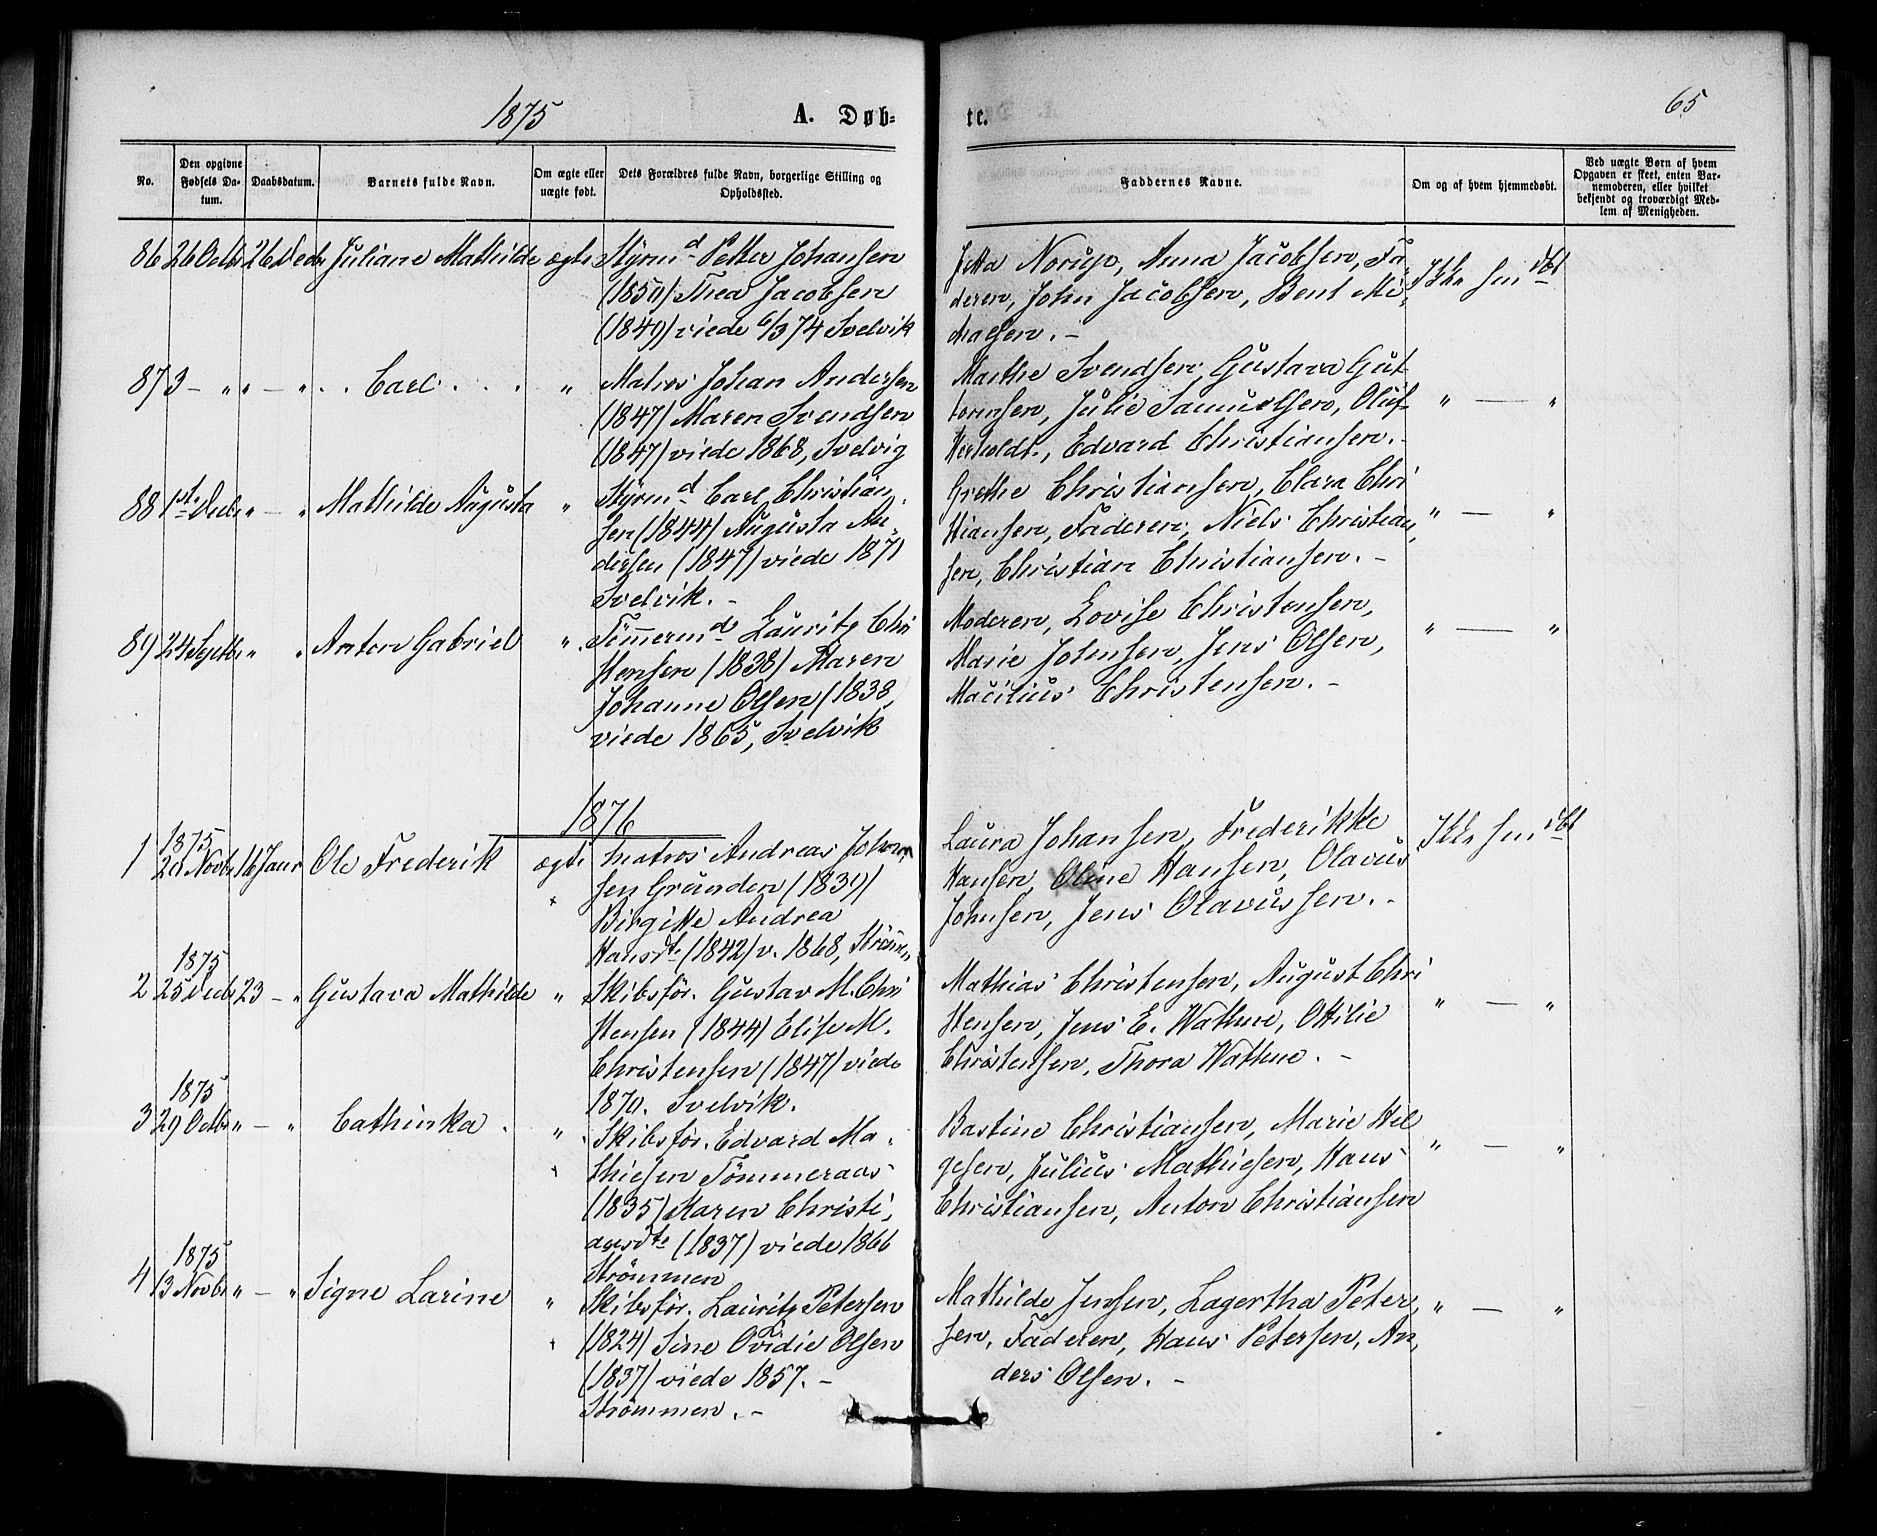 1875 A. Døb-
te. 65
No. Den opgivne Fødsels Da-tum. Daabsdatum. Barnets fulde Navn. Om ægte eller uægte født. Dets Forældres fulde Navn, borgerlige Stilling og Opholdssted. Faddernes Navne. Om og af hvem hjemmedøbt. Ved uægte Børn af hvem Opgaven er skeet, enten Bar-nemoderen, eller hvilket bekjendt og troværdigt Med-lem af Menigheden.
86 26 Octbr 26 Decbr Juliane Mathilde ægte Styrmd Petter Johansen
(1850) Thea Jacobsen
(1849) viede 6/3 74 Svelvik
Jetta Norup, Anna Jacobsen, Fa-
deren, John Jacobsen, Bent Mi-
chaelsen. -
Ikke hmdbt
87 3 - " " - " Carl " Matros Johan Andersen
(1847) Maren Svendsen
(1847) viede 1868, Svelvig
Marthe Svendsen, Gustava Gut-
tormsen, Julie Samuelsen, Oluf
Hertholdt, Edvard Christiansen. -
" — "
88 1ste Decbr " - " Mathilde Augusta " Styrmd Carl Christian
sen (1844) Augusta An-
dersen (1847) viede 1871
Svelvik. -
Grethe Christiansen, Clara Chri
stiansen, Faderen, Niels Christian-
sen, Christian Christiansen. -
" — "
89 24 Septbr " " Anton Gabriel " Tømmermd Lauritz Chri
stensen (1838) Maren
Johanne Olsen (1838
viede 1865, Svelvik
Moderen, Lovise Christensen,
Marie Johnsen, Jens Olsen,
Macilius Christensen. -
" — "
1876
1875
1 20 Novbr 16 Janr Ole Frederik ægte Matros Andreas Johan-
sen Grunden (1839)
Birgitte Andrea
Hansdtr (1842) v. 1868, Strømm-
Laura Johansen, Frederikke
Hansen, Oline Hansen, Olavus
Johnsen, Jens Olavussen. -
Ikke hmdbt
1875
2 25 Decbr 23 - " Gustava Mathilde " Skibsfør. Gustav M. Chri
stensen (1844) Elise M.
Christensen (1847) viede
1870. Svelvik.
Mathias Christensen, August Chri
stensen, Jens E. Wathne, Ottilie
Christensen, Thora Wathne. -
" — "
1875
3 29 Octbr " - " Cathinka " Skibsfør. Edvard Ma-
thiesen Tømmeraas
(1835) Karen Christi-
ansdtr (1837) viede 1866
Strømmen
Bastine Christiansen, Marie Hel
gesen, Julius Mathiesen, Hans
Christiansen, Anton Christiansen
" — "
1875
4 13 Novbr " - " Signe Larine " Skibsfør. Lauritz Petersen
(1824) Sine Ovidie Olsen
(1837) viede 1857. -
Strømmen. -
Mathilde Jensen, Lagertha Peter-
sen, Faderen, Hans Petersen, An-
ders Olsen. -
" — "